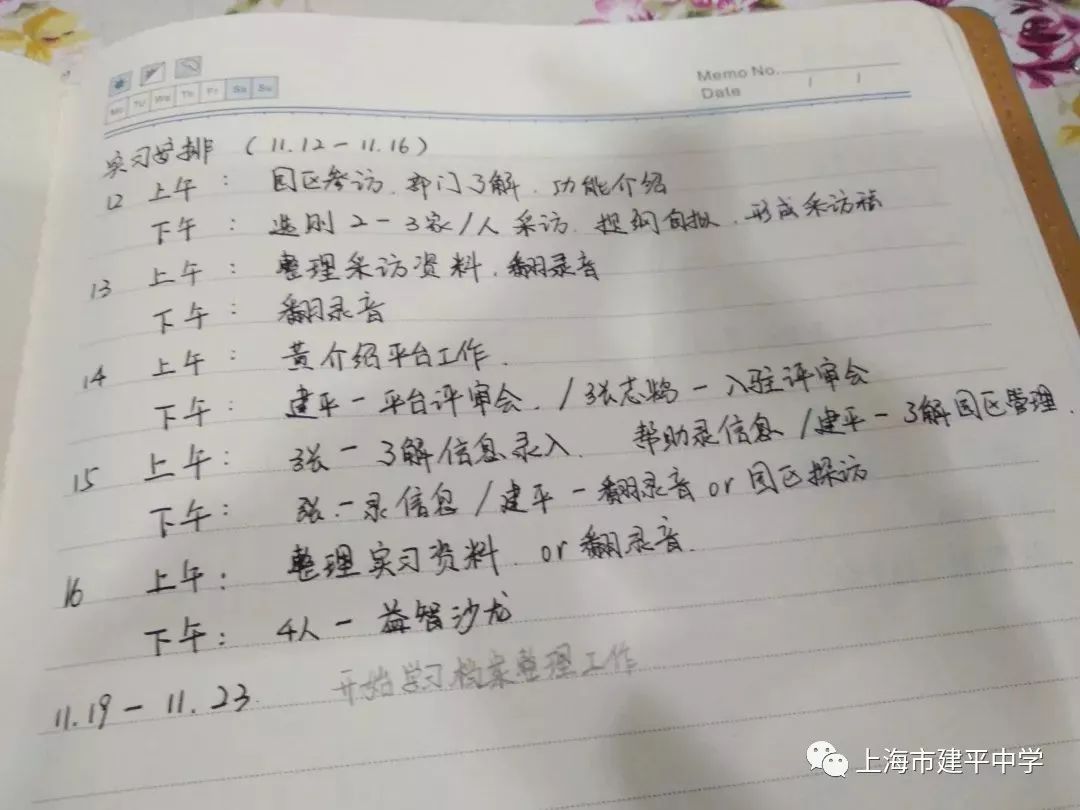 Memo No.
Date / /
Mo Tu We Th Fr Sa Su
实习安排 (11.12-11.16)
12 上午: 园区参访.部门了解.功能介绍
下午: 选则2-3家/人采访.提纲自拟.形成采访稿
13 上午: 整理采访资料.翻录音
下午: 翻录音
14 上午: 黄介绍平台工作.
下午: 建平-平台评审会./张志鹄-入驻评审会
15 上午: 张-了解信息录入. 帮助录信息/建平-了解园区管理.
下午: 张-录信息/建平-翻录音or园区探访
16 上午: 整理实习资料.or翻录音.
下午: 4人-益智沙龙
11.19-11.23. 开始学习档案整理工作
上海市建平中学